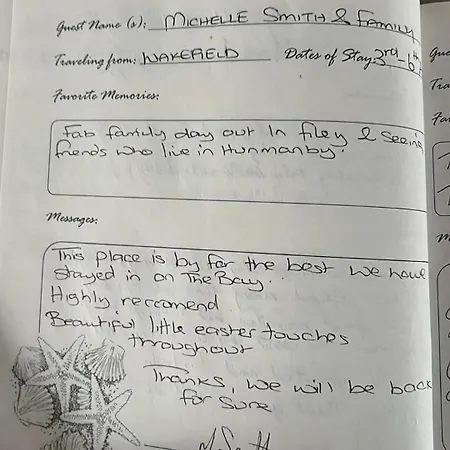 Guest Name (s): MICHELLE SMITH & FAMILY
Traveling from: WAKEFIELD Dates of Stay: 3rd - 6th
Favorite Memories:
Fab family day out in filey & seeing
friends who live in Hunmanby.
Messages:
This place is by far the best we have
stayed in on The Bay.
Highly reccomend
Beautiful little easter touches
throughout
Thanks, we will be back
for sure